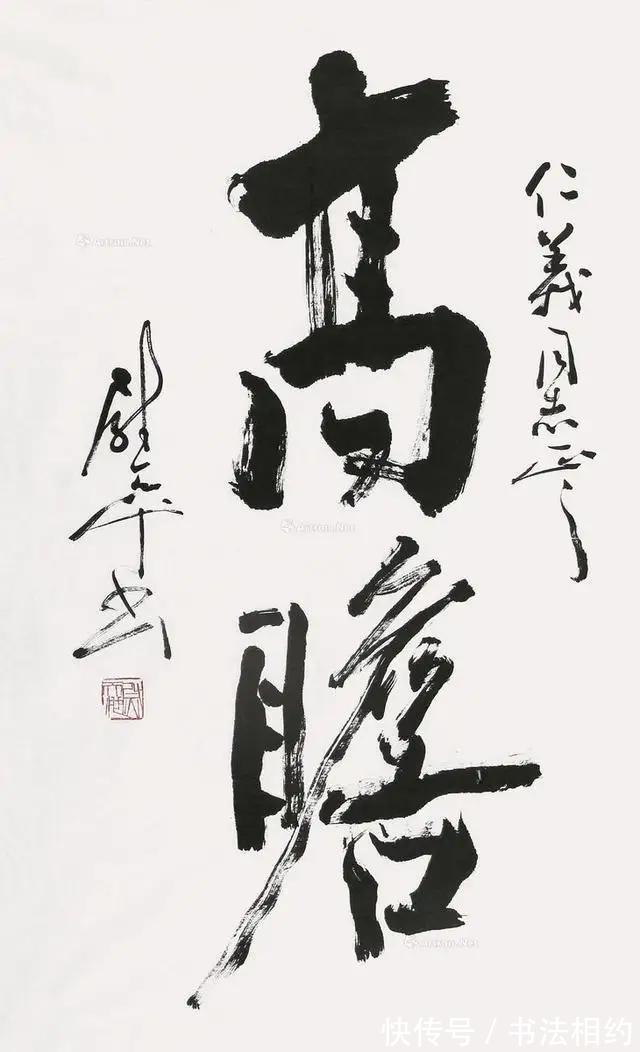 高瞻
仁義同志正之
书
Artron.Net
Artron.Net
Artron.Net
快传号 / 书法相约